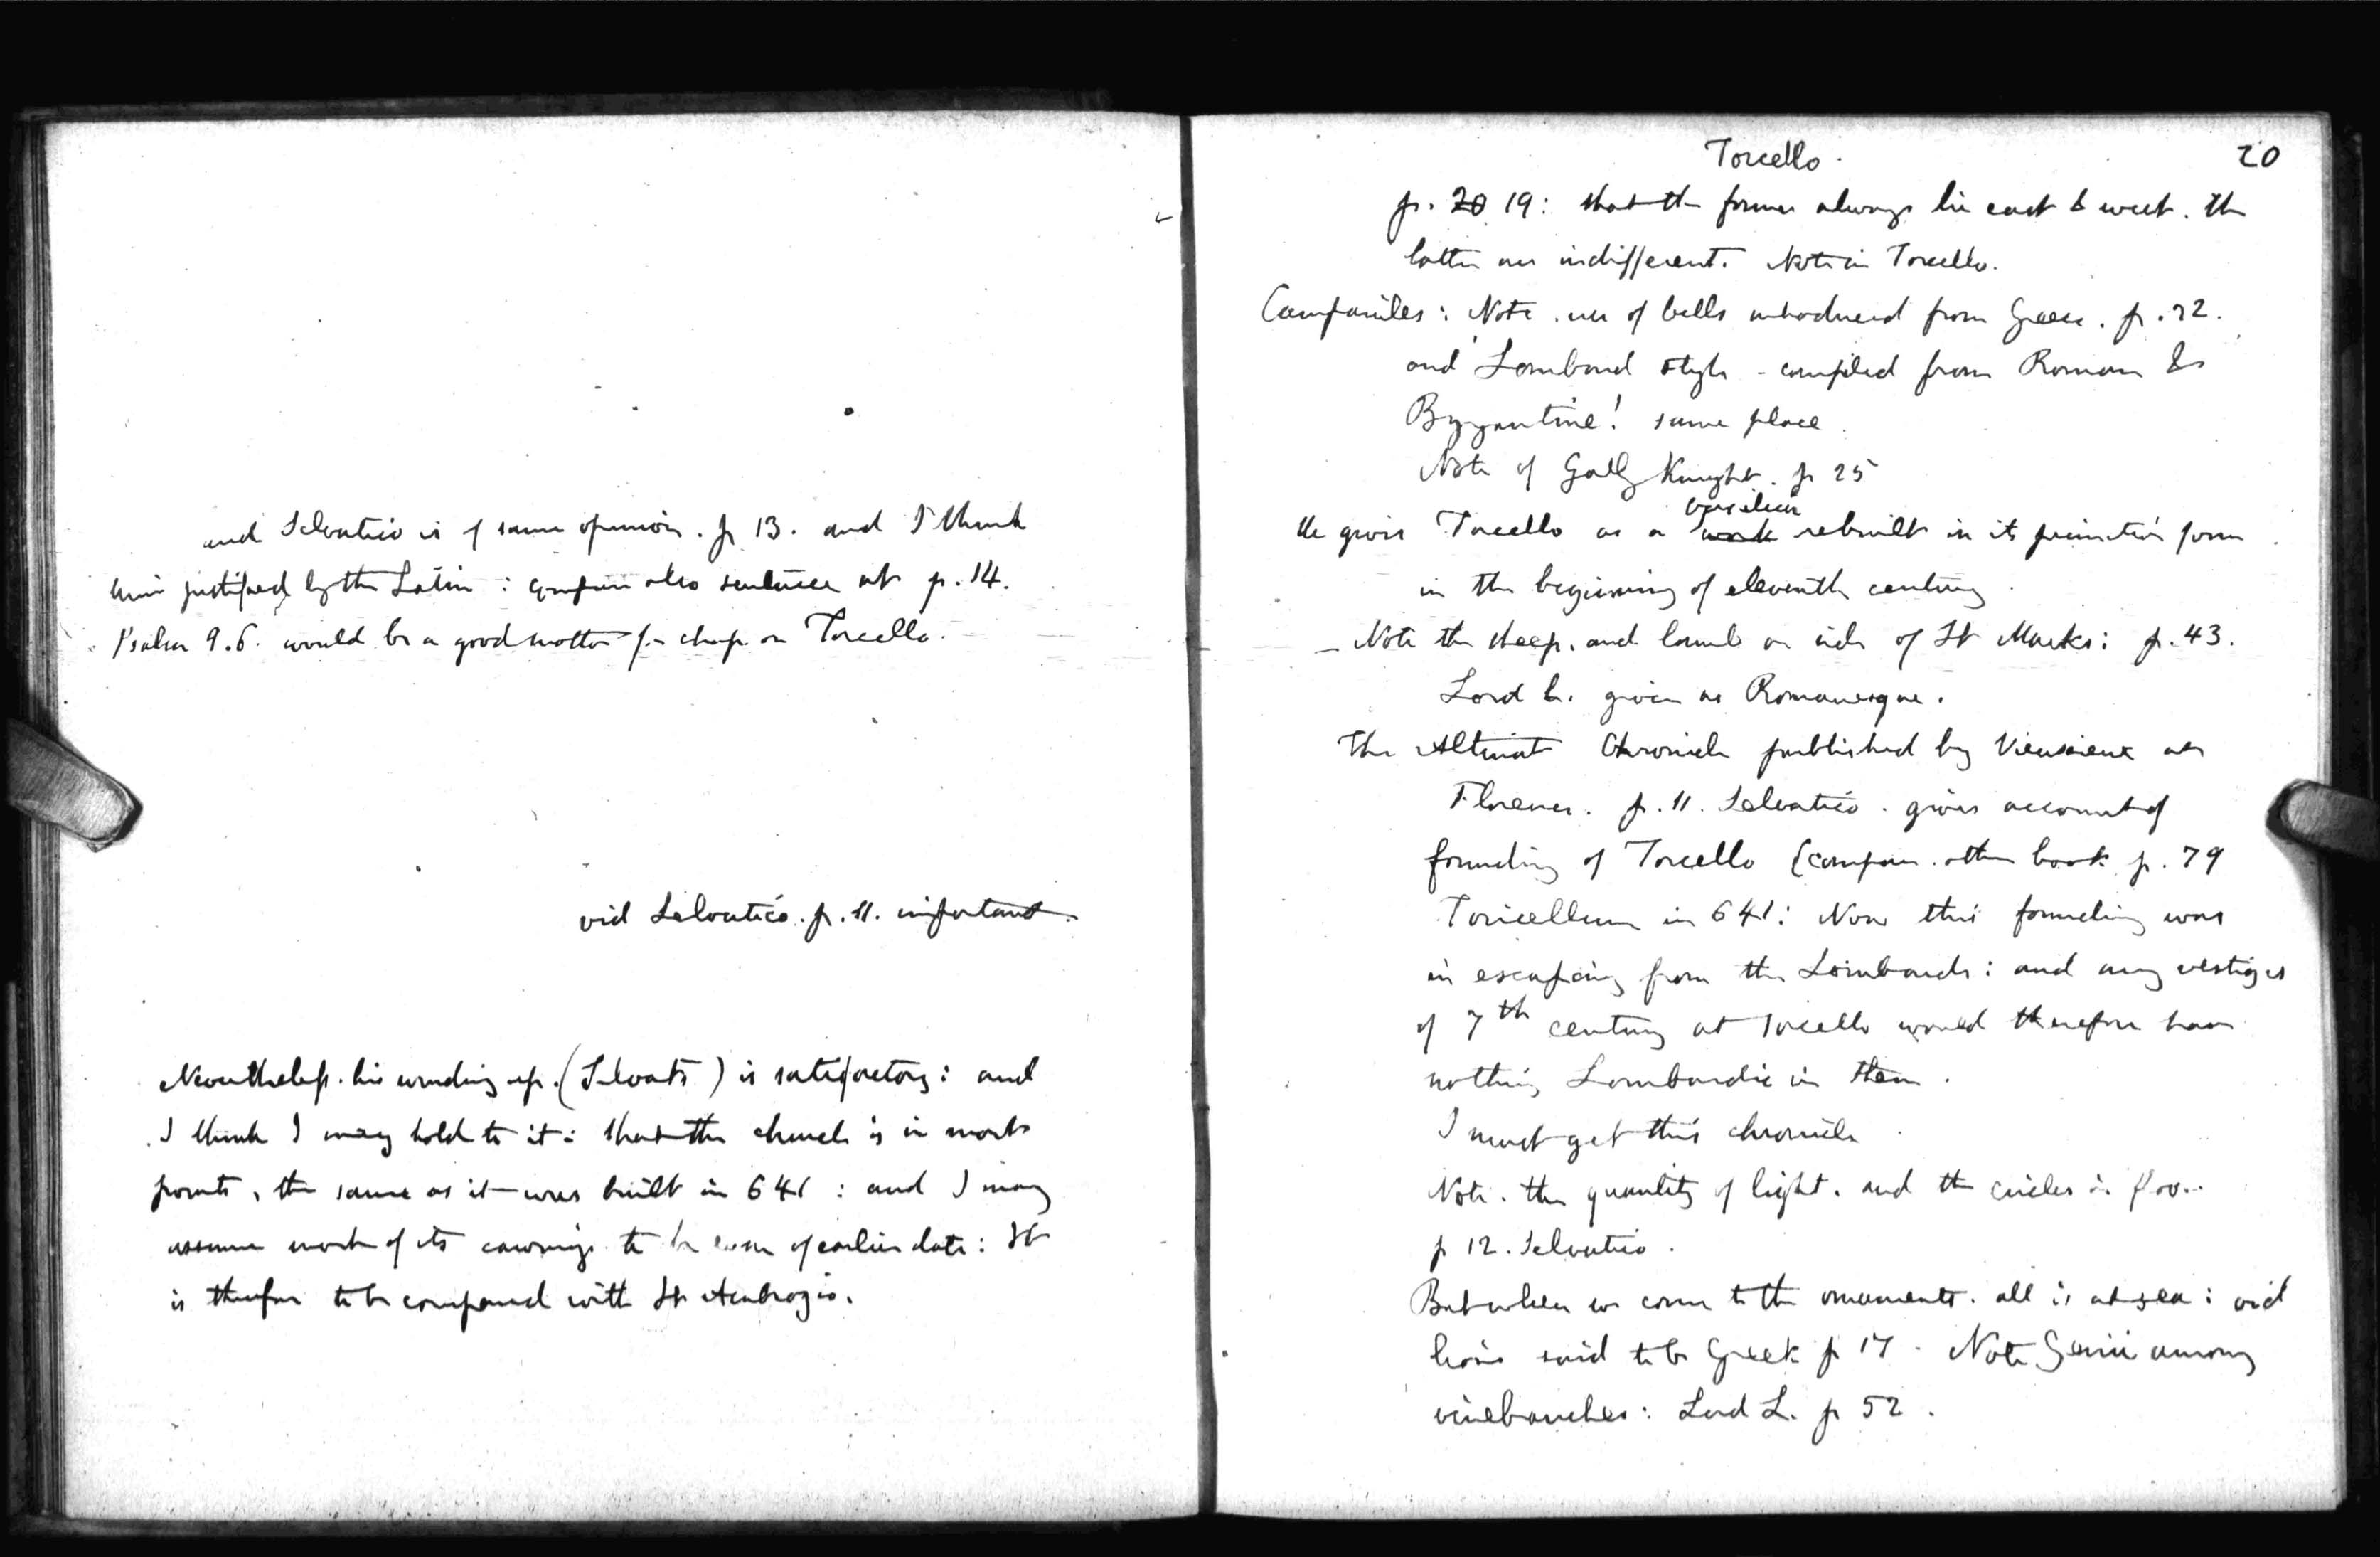 and Selvatico is of same opinion. p 13. and I think
him justified by the Latin : compare also sentence at p. 14.
Psalm 9.6. would be a good motto for chap on Torcello.
vid Selvatico. p. 11. important.
Nevertheless. his winding up. (Selvat's) is satisfactory: and
I think I may hold to it: that the church is in most
points, the same as it was built in 641 : and I may
assume most of its carvings to be even of earlier date: It
is therefore to be compared with St Ambrogio.
Torcello.
20
p. 20 19: that the former always lie east & west. the
latter are indifferent. Note in Torcello.
Campaniles: Note. use of bells introduced from Greece. p. 22.
and Lombard style - compiled from Roman &
Byzantine! same place.
Note of Gally Knight. p 25
basilica
He gives Torcello as a work rebuilt in its primitive form
in the beginning of eleventh century.
– Note the sheep. and lamb on side of St Marks: p. 43.
Lord L. given as Romanesque.
The Altinat Chronicle published by Vieusieux at
Florence. p. 11. Selvatico. gives account of
founding of Torcello (compare. other book p. 79
Toricellum in 641: Now this founding was
in escaping from the Lombards: and any vestiges
of 7th century at Torcello would therefore have
nothing Lombardic in them.
I must get this chronicle
Note. the quantity of light. and the circles in floor.
p 12. Selvatico.
But when we come to the ornaments. all is at sea: vid
lions said to be Greek p 17. Note Genii among
vinebranches: Lord L. p 52.